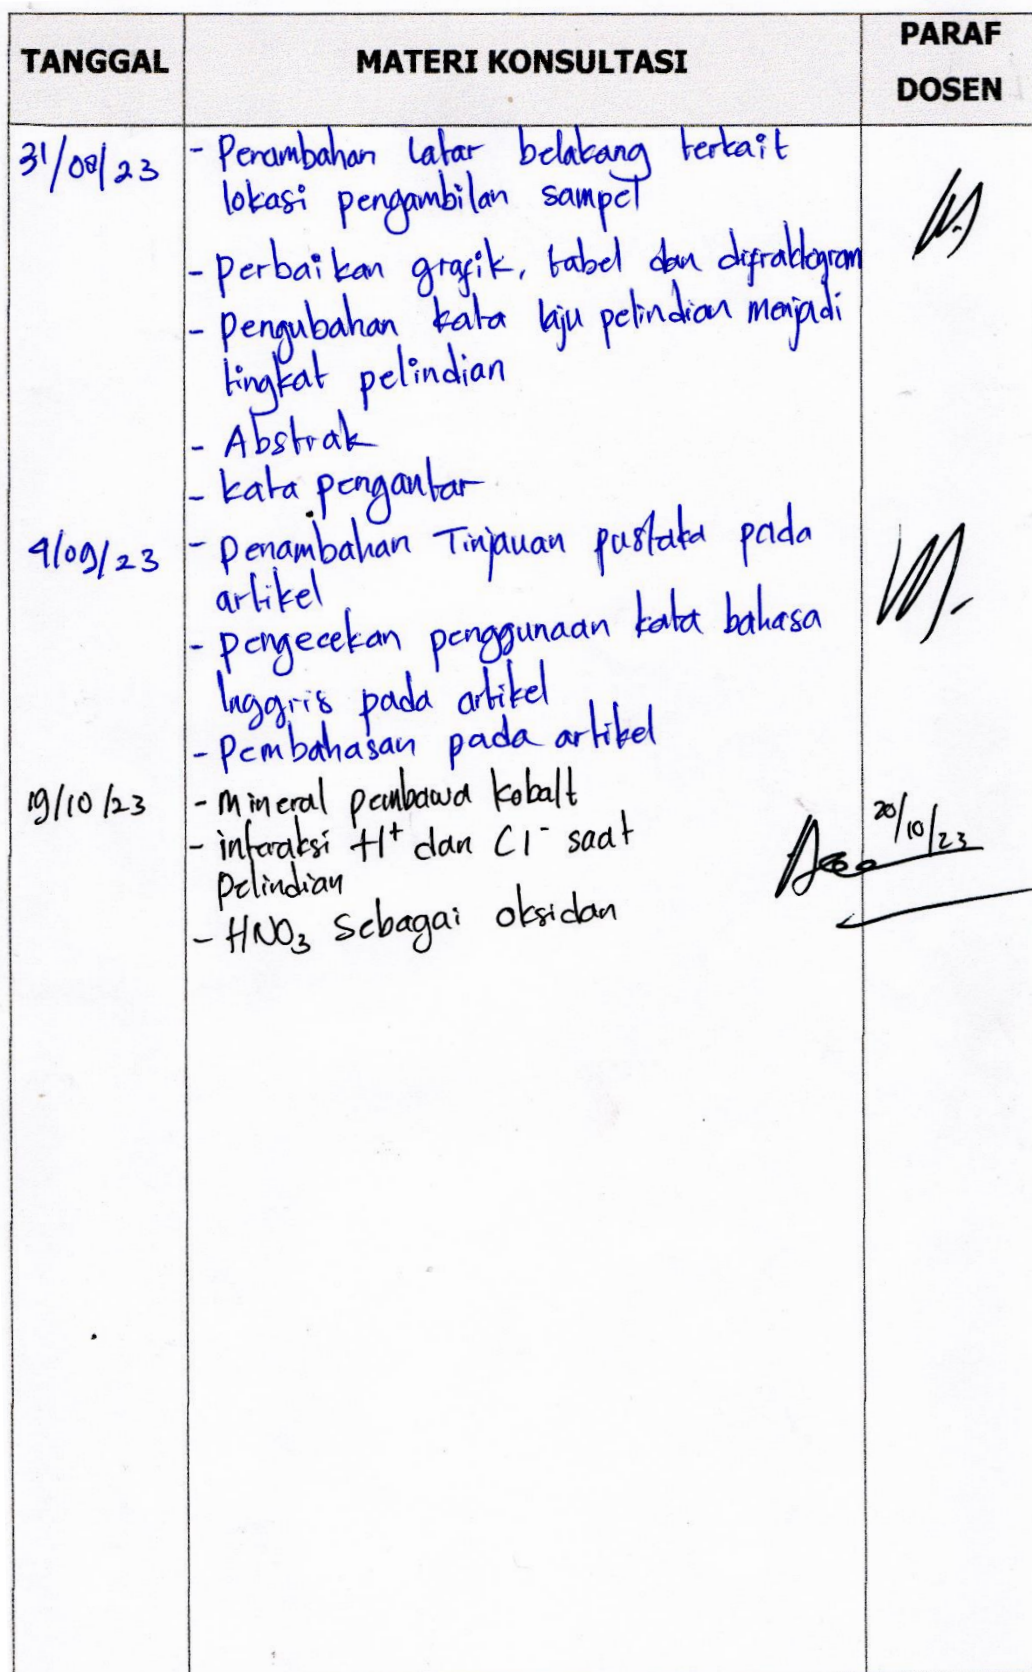 TANGGAL MATERI KONSULTASI PARAF DOSEN
31/08/23 - Penambahan latar belakang terkait
lokasi pengambilan sampel
- perbaikan grafik, tabel dan difraktogram
- pengubahan kata laju pelindian menjadi
tingkat pelindian
- Abstrak
- kata pengantar
4/09/23 - penambahan Tinjauan pustaka pada
artikel
- pengecekan penggunaan kata bahasa
Inggris pada artikel
- Pembahasan pada artikel
19/10/23 - mineral pembawa kobalt
- interaksi H⁺ dan Cl⁻ saat
pelindian
- HNO₃ sebagai oksidan
20/10/23